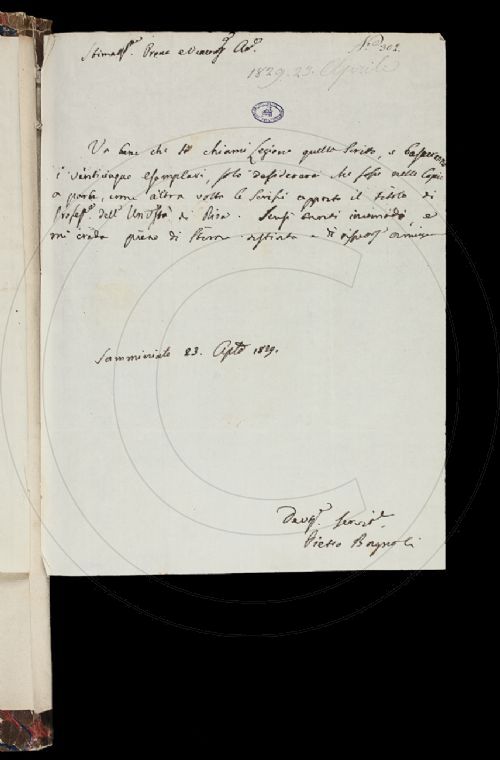 Stimatiss.º Prone e Veneratiss. Am.º
N.º 302.
1829. 23. Aprile
Va bene che si chiami Lezione quello scritto, e basteranno
i venticinque esemplari, solo desidererei che fosse nelle Copie
a parte, come altra volta le scrissi apposto il titolo di
Profess.e dell'Università di Pisa. Scusi tanti incomodi, e
mi creda pieno di stima distinta e di
Samminiato 23. Aple 1829.
Devmº. Servit.
Pietro Bagnoli